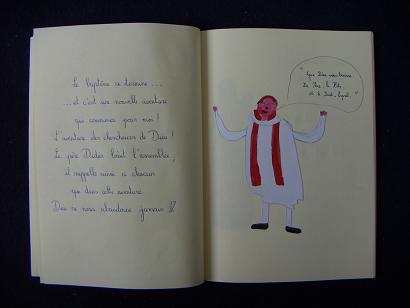 Le baptême se termine...
...et c'est une nouvelle aventure
qui commence pour moi !
L'aventure des chercheurs de Dieu !
Le père Didier bénit l'assemblée,
il rappelle aussi à chacun
que dans cette aventure
Dieu ne nous abandonne jamais !
"Que Dieu vous bénisse
Le Père, le Fils
et le Saint-Esprit."